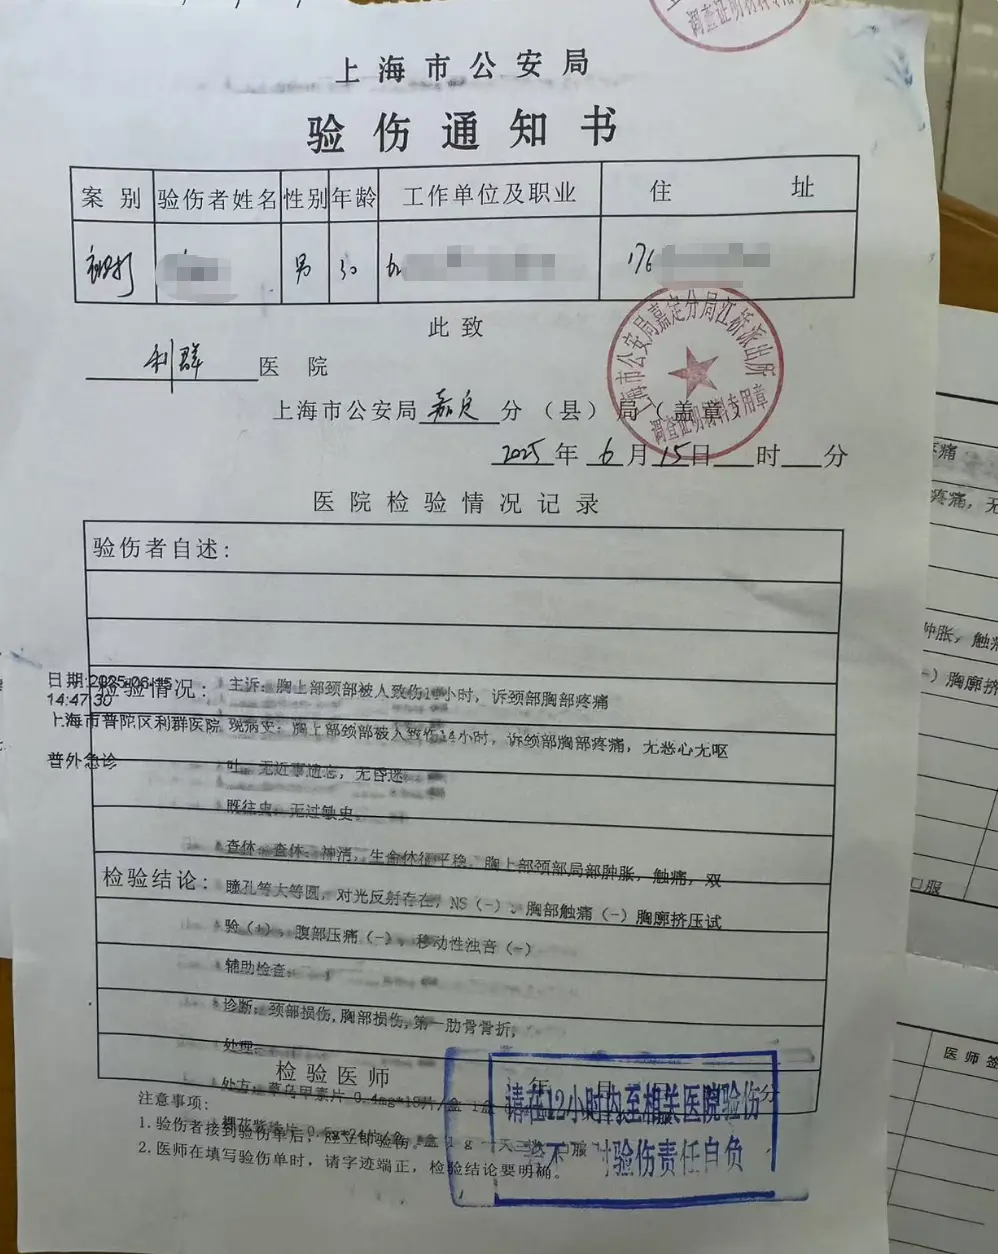 调查证明材料专用章
上海市公安局
验伤通知书
案别 验伤者姓名 性别 年龄 工作单位及职业 住址
被打 男 30 176
此致
利群 医院
上海市公安局 嘉定 分（县）局（盖章）
上海市公安局嘉定分局江桥派出所
调查证明材料专用章
2025 年 6 月 15 日 时 分
医院检验情况记录
验伤者自述：
日期:2025-06-15
14:47:30
检验情况：
主诉：胸上部颈部被人致伤14小时，诉颈部胸部疼痛
上海市普陀区利群医院 现病史：胸上部颈部被人致伤14小时，诉颈部胸部疼痛，无恶心无呕
普外急诊
吐，无近事遗忘，无昏迷
既往史：无过敏史。
查体：查体：神清，生命体征平稳，胸上部颈部局部肿胀，触痛，双
检验结论：
瞳孔等大等圆，对光反射存在，NS（-）、胸部触痛（-）胸廓挤压试
验（+）、腹部压痛（-）、移动性浊音（-）
辅助检查：
诊断：颈部损伤,胸部损伤,第一肋骨骨折，
处理：
检验医师 年 月 分
处方：草乌甲素片 0.4mg*18片/盒 1盒
注意事项：
1.验伤者接到验伤单后，应立即验伤。
2.医师在填写验伤单时，请字迹端正，检验结论要明确。
请在12小时内至相关医院验伤
时验伤责任自负
疼痛
疼痛，无
肿胀，触
-）胸廓挤
口服
医师签